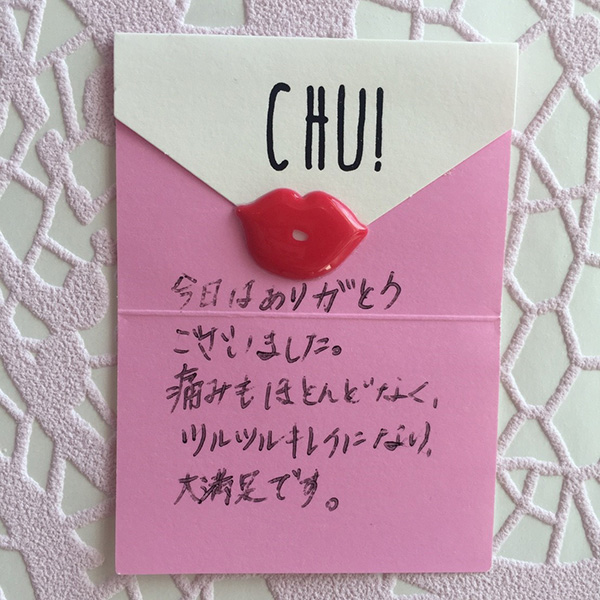 CHU!
今日はありがとう
ございました。
痛みもほとんどなく、
ツルツルキレイになり、
大満足です。